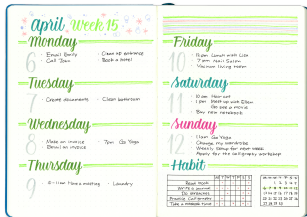 april Week 15
Monday
6
Email Emily
Call Jean
Clean up entrance
Book a hotel
Tuesday
7
Create documents
Clean bathroom
Wednesday
8
Make an invoice
Email an invoice
7pm Go Yoga
Thursday
9
9-11am Have a meeting
Laundry
Friday
10
11am Lunch with Lisa
7pm Nail Salon
Vacuum living room
Saturday
11
10am Hair cut
1pm Meet up with Ellen
Go see a movie
Buy new notebook
Sunday
12
11am Go Yoga
Change my wardrobe
Weekly Setup for next week
Apply for the calligraphy workshop
Habit
M T W T F S S
Read book
Write a journal
Do exercises
Practice Calligraphy
Take a morning walk